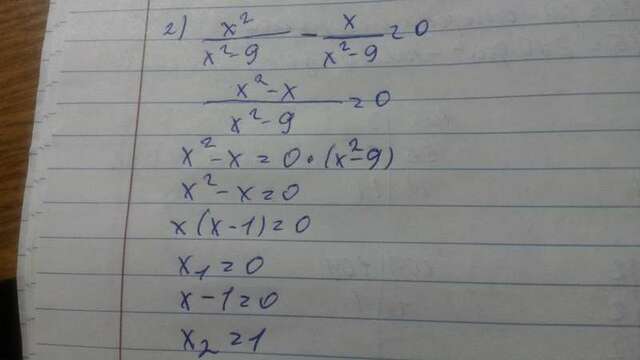 2) x²/(x²-9) - x/(x²-9) = 0
(x²-x)/(x²-9) = 0
x²-x = 0·(x²-9)
x²-x = 0
x(x-1) = 0
x₁ = 0
x-1 = 0
x₂ = 1